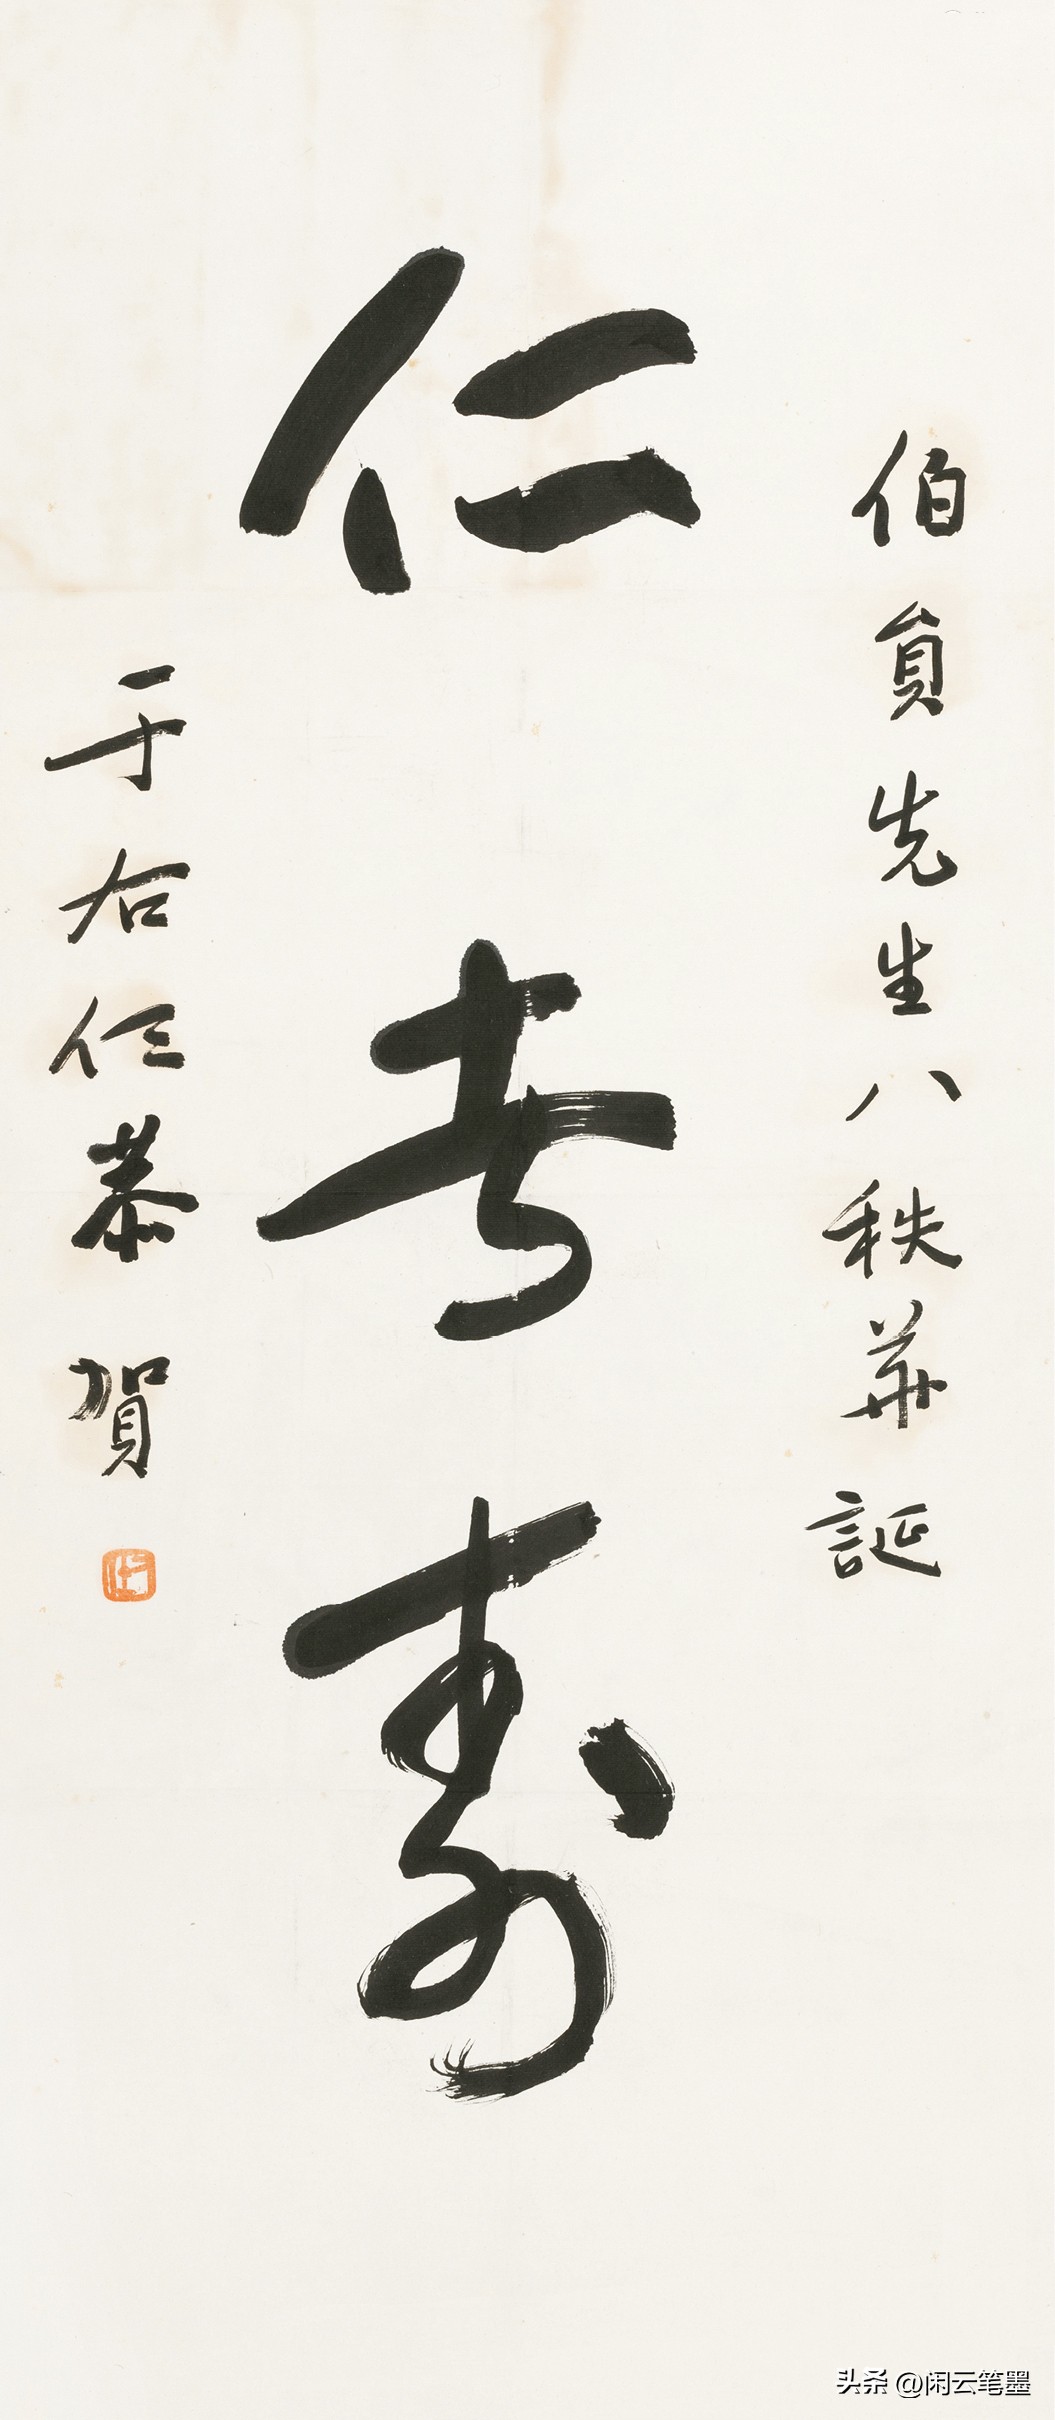 伯員先生八秩華誕
仁者壽
于右任恭賀
头条 @闲云笔墨